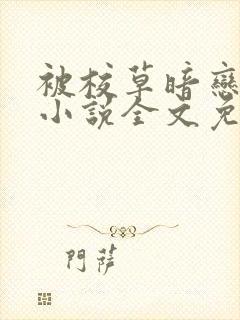 被校草暗戀
小說全文免
門薩